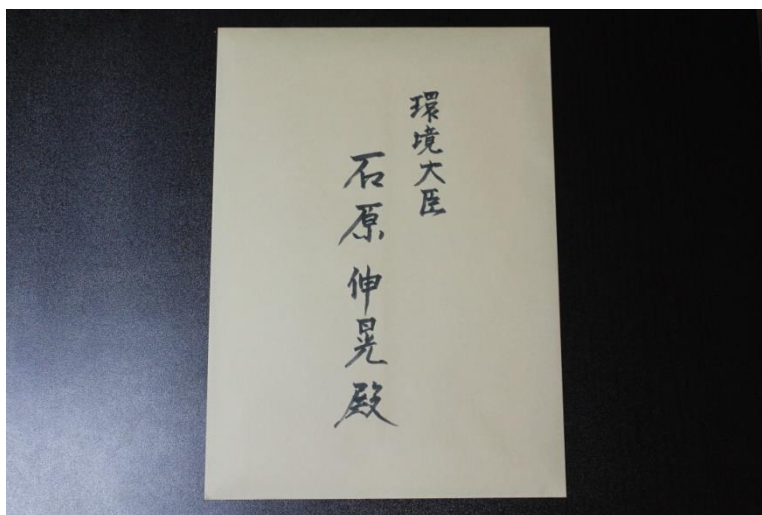 環境大臣
石原伸晃殿